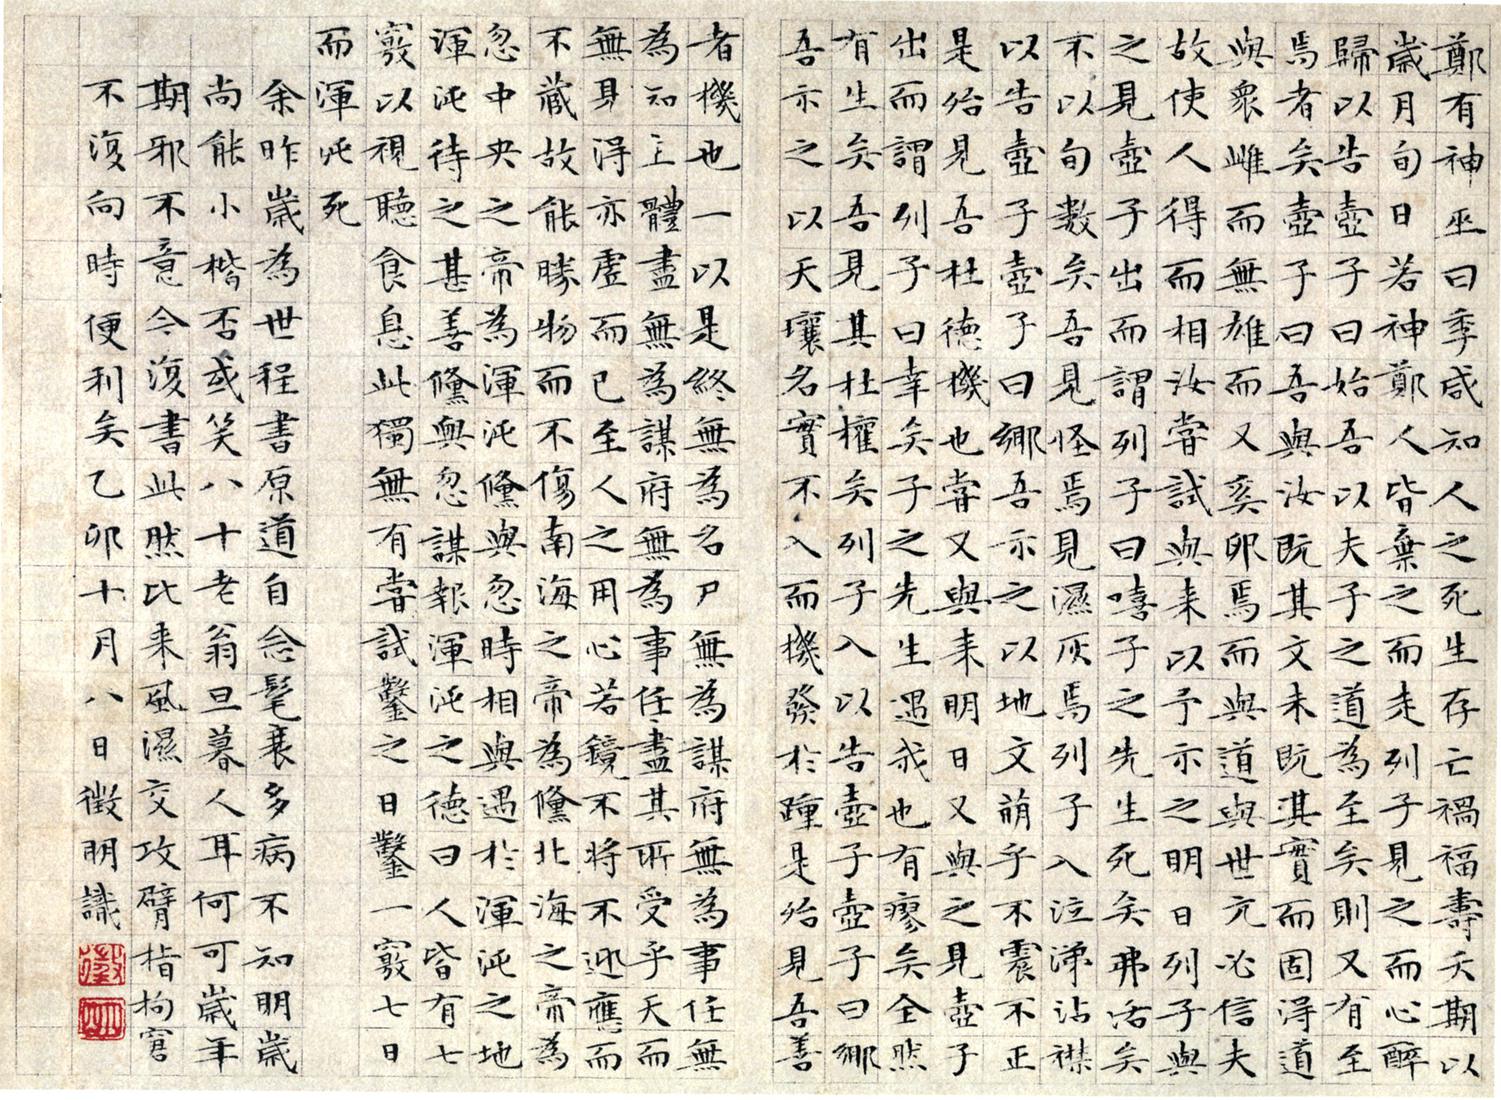 鄭有神巫曰季咸知人之死生存亡禍福壽夭期以
歲月旬日若神鄭人皆棄之而走列子見之而心醉
歸以告壺子曰始吾以夫子之道為至矣則又有至
焉者矣壺子曰吾與汝既其文未既其實而固得道
與衆雌而無雄而又奚卵焉而與道與世亢必信夫
故使人得而相汝嘗試與来以予示之明日列子與
之見壺子出而謂列子曰嘻子之先生死矣弗活矣
不以旬數矣吾見怪焉見濕灰焉列子入泣涕沾襟
以告壺子壺子曰鄉吾示之以地文萌乎不震不正
是殆見吾杜德機也嘗又與来明日又與之見壺子
出而謂列子曰幸矣子之先生遇我也有瘳矣全然
有生矣吾見其杜權矣列子入以告壺子壺子曰鄉
吾示之以天壤名實不入而機發於踵是殆見吾善
者機也一以是終無為名尸無為謀府無為事任無
為知主體盡無為謀府無為事任盡其所受乎天而
無見得亦虚而已至人之用心若鏡不將不迎應而
不藏故能勝物而不傷南海之帝為儵北海之帝為
忽中央之帝為渾沌儵與忽時相與遇於渾沌之地
渾沌待之甚善儵與忽謀報渾沌之德曰人皆有七
竅以視聽食息此獨無有嘗試鑿之日鑿一竅七日
而渾沌死
余昨歲為世程書原道自念髦衰多病不知明歲
尚能小楷否或笑八十老翁旦暮人耳何可歲年
期邪不意今復書此然比来風濕交攻臂指拘窘
不復向時便利矣乙卯十月八日徵明識
徵
明